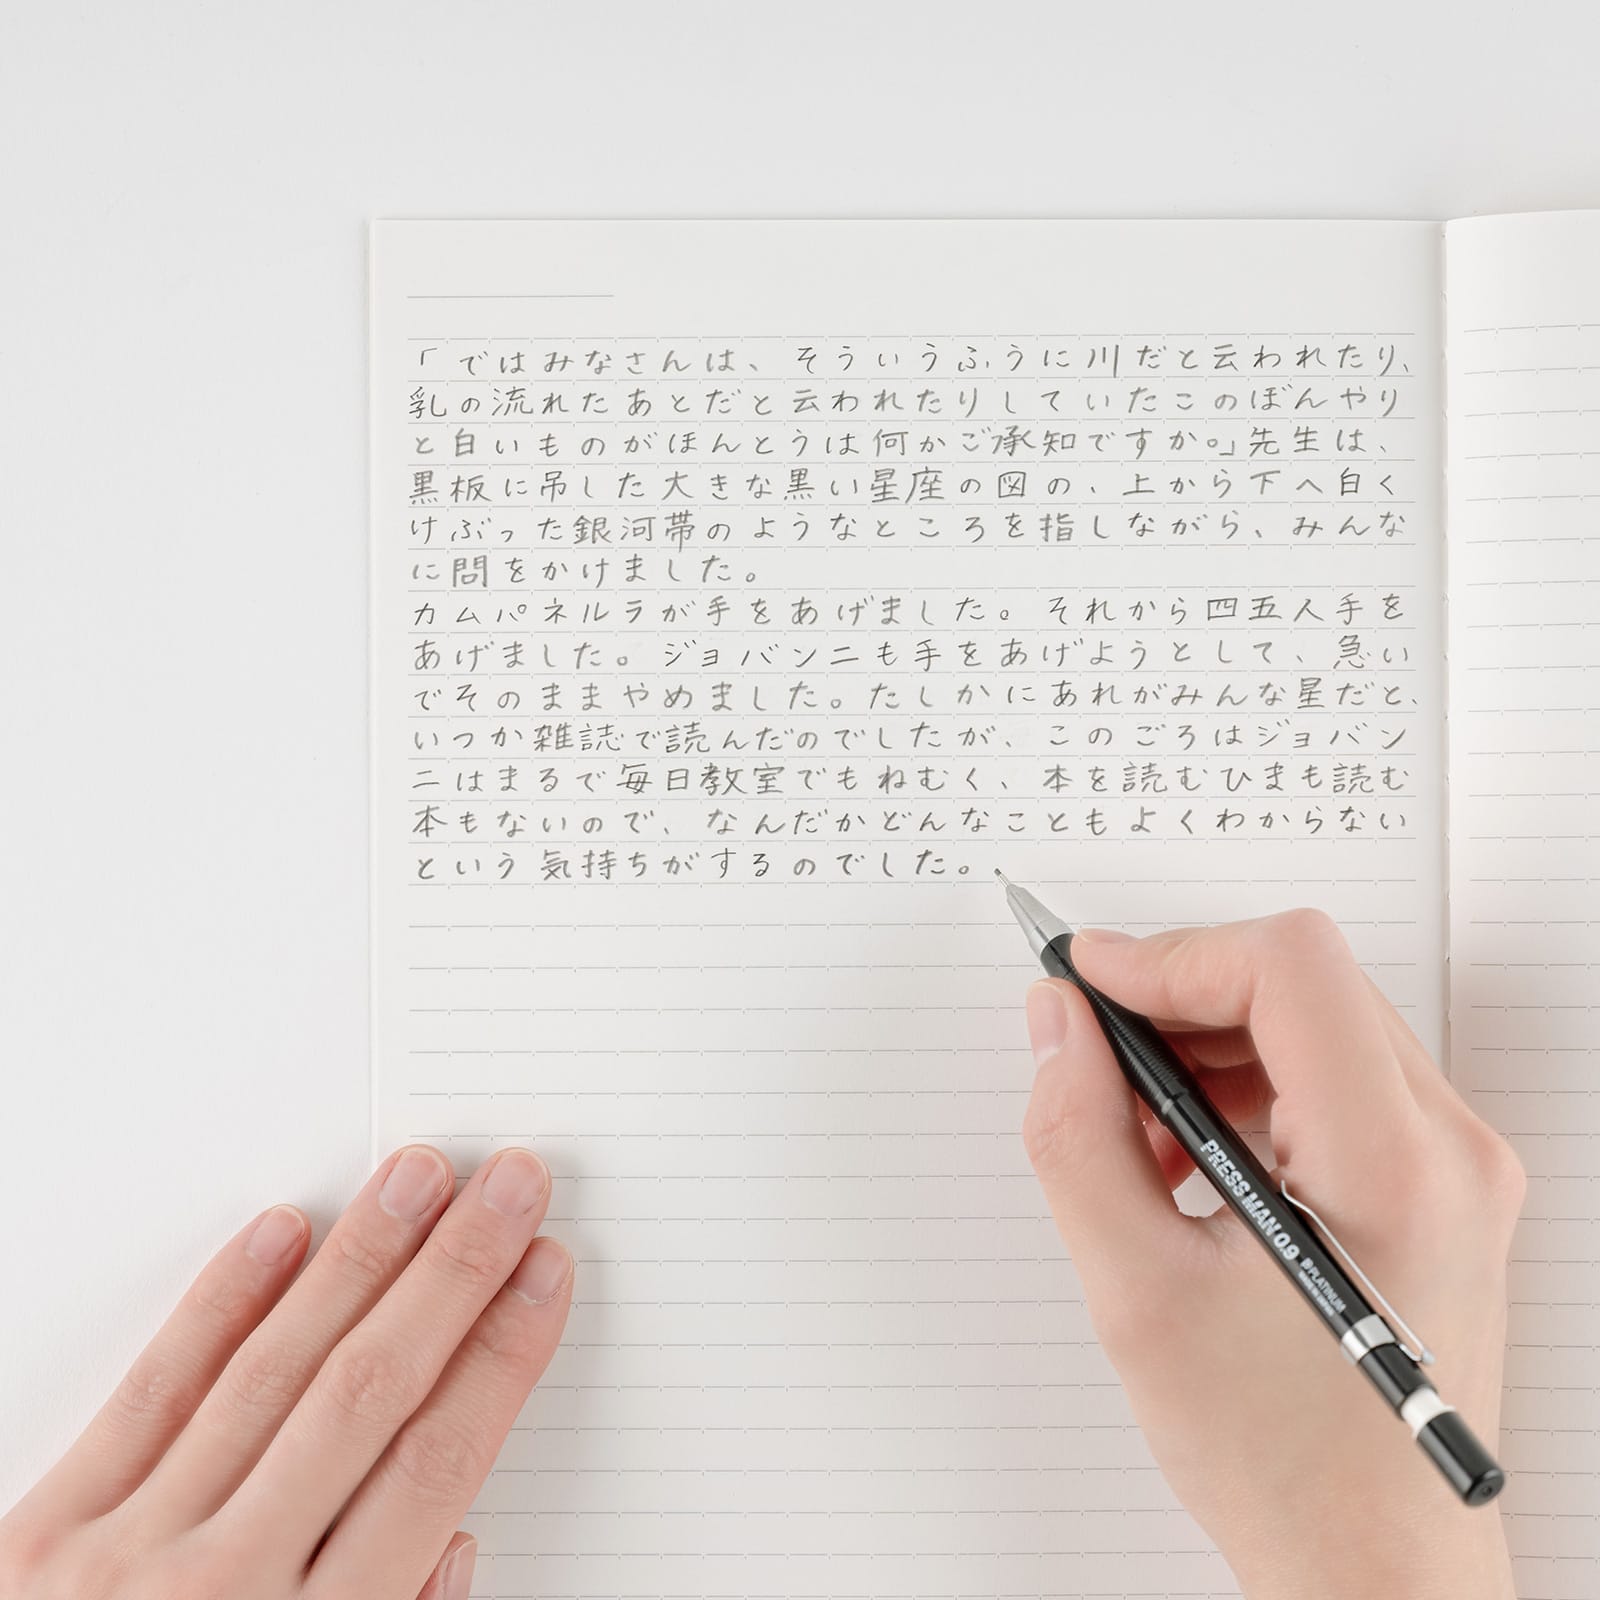 「ではみなさんは、そういうふうに川だと云われたり、
乳の流れたあとだと云われたりしていたこのぼんやり
と白いものがほんとうは何かご承知ですか。」先生は、
黒板に吊した大きな黒い星座の図の、上から下へ白く
けぶった銀河帯のようなところを指しながら、みんな
に問をかけました。
カムパネルラが手をあげました。それから四五人手を
あげました。ジョバンニも手をあげようとして、急い
でそのままやめました。たしかにあれがみんな星だと、
いつか雑誌で読んだのでしたが、このごろはジョバン
ニはまるで毎日教室でもねむく、本を読むひまも読む
本もないので、なんだかどんなこともよくわからない
という気持ちがするのでした。
PRESSMAN 0.9 PLATINUM